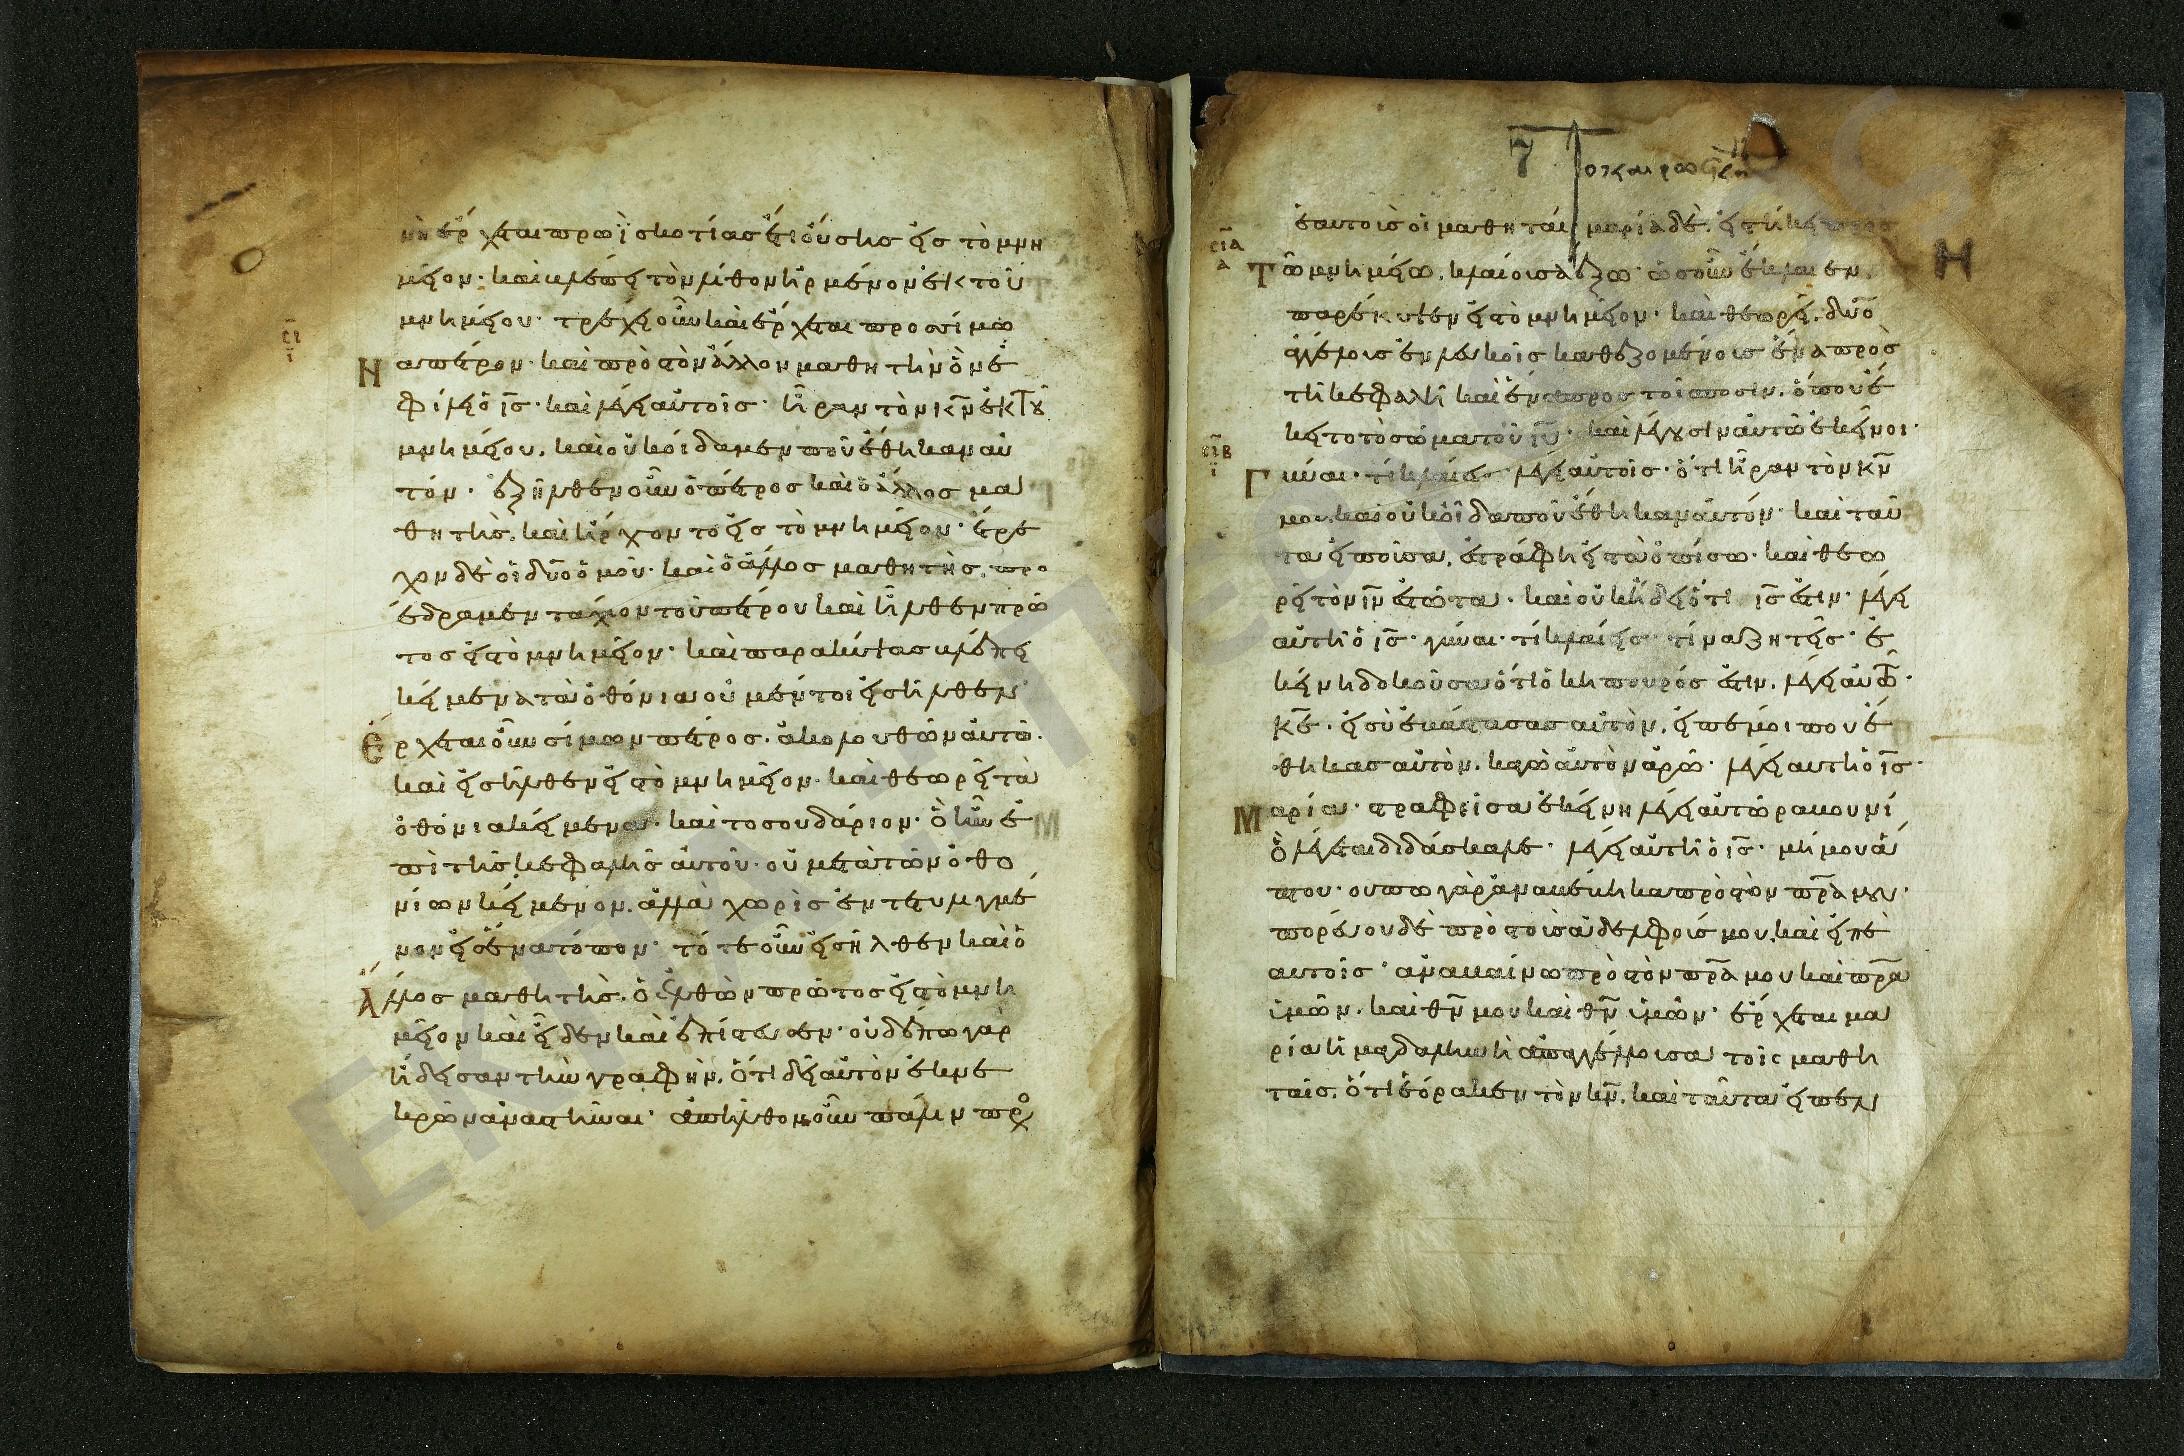 νὴ ἔρχεται πρωῒ σκοτίας ἔτι οὔσης εἰς τὸ μνη
μεῖον· καὶ βλέπει τὸν λίθον ἠρμένον ἐκ τοῦ
μνημείου· τρέχει οὖν καὶ ἔρχεται προς σίμω
να πέτρον· καὶ πρὸς τὸν ἄλλον μαθητὴν ὃν ἐ
φίλει ὁ ις· καὶ λέγει αὐτοῖς· ἦραν τὸν κν ἐκ τοῦ
μνημείου, καὶ οὐκ οἴδαμεν ποῦ ἔθηκαν αὐ
τόν· ἐξῆλθεν οὖν ὁ πέτρος καὶ ὁ ἄλλος μα
θητὴς, καὶ ἤρχοντο εἰς τὸ μνημεῖον· ἔτρε
χον δὲ οἱ δύο ὁμοῦ· καὶ ὁ ἄλλος μαθητὴς, προ
έδραμεν τάχιον τοῦ πέτρου καὶ ἦλθεν πρῶ
τος εἰς τὸ μνημεῖον· καὶ παρακύψας βλέπει
κείμενα τὰ ὀθόνια οὐ μέντοι εἰσῆλθεν
Ερχεται οὖν σίμων πέτρος· ἀκολουθῶν αὐτῶ·
καὶ εἰσῆλθεν εἰς τὸ μνημεῖον· καὶ θεωρεῖ τὰ
ὀθόνια κείμενα· καὶ τὸ σουδάριον· ὃ ἦν ἐ
πὶ τῆς κεφαλῆς αὐτοῦ· οὐ μετὰ τῶν ὀθο
νίων κείμενον, ἀλλὰ χωρὶς ἐντετυλιγμέ
νον εἰς ἕνα τόπον· τότε οὖν εἰσῆλθεν καὶ ὁ
ἄλλος μαθητὴς· ὁ ἐλθὼν πρῶτος εἰς τὸ μνη
μεῖον καὶ εἶδεν καὶ ἐπίστευσεν· οὐδέπω γὰρ
ἤδεισαν τὴν γραφὴν, ὅτι δεῖ αὐτὸν ἐκ νε
κρῶν ἀναστῆναι· ἀπῆλθον οὖν πάλιν πρὸς
Τω καιρω
ἑαυτοὺς οἱ μαθηταὶ μαρία δὲ εἱστήκει πρὸς
Τῶ μνημείω, κλαίουσα ἔξω· ὡς οὖν ἔκλαιεν,
παρέκυψεν εἰς τὸ μνημεῖον· καὶ θεωρεῖ, δύο
ἀγγέλους ἐν λευκοῖς καθεζομένους ἕνα πρὸς
τῆ κεφαλῆ καὶ ἕνα πρὸς τοῖς ποσὶν, ὅπου ἔ
κειτο τὸ σῶμα τοῦ ιυ· καὶ λέγουσιν αὐτῶ ἐκεῖνοι·
Γύναι· τί κλαίεις λέγει αὐτοῖς· ὅτι ἦραν τὸν κν
μου, καὶ οὐκ οἶδα ποῦ ἔθηκαν αὐτόν· καὶ ταῦ
τα εἰποῦσα, ἐστράφη εἰς τὰ ὀπίσω· καὶ θεω
ρεῖ τὸν ιν ἑστῶτα· καὶ οὐκ ἤδει ὅτι ις ἐστιν· λέγει
αὐτῆ ὁ ις· γύναι· τί κλαίεις· τίνα ζητεῖς· ἐ
κείνη δοκοῦσα ὅτι ὁ κηπουρός ἐστιν, λέγει αὐτῶ·
κε· εἰ σὺ ἐβάστασας αὐτὸν, εἰπέ μοι ποῦ ἔ
θηκας αὐτὸν, κἀγὼ αὐτὸν ἀρῶ· λέγει αὐτῆ ὁ ις·
Μαρία· στραφεῖσα ἐκείνη λέγει αὐτῶ ραβουνί
ὃ λέγεται διδάσκαλε· λέγει αὐτῆ ὁ ις· μή μου ἅ
πτου· οὔπω γὰρ ἀναβέβηκα πρὸς τὸν πρα μου·
πορεύου δὲ πρὸς τοὺς ἀδελφούς μου, καὶ εἰπὲ
αὐτοῖς· ἀναβαίνω πρὸς τὸν πρα μου καὶ πρα
ὑμῶν, καὶ θν μου καὶ θν ὑμῶν· ἔρχεται μα
ρία ἡ μαγδαληνὴ ἀπαγγέλλουσα τοῖς μαθη
ταῖς, ὅτι ἑόρακεν τὸν κν, καὶ ταῦτα εἶπεν